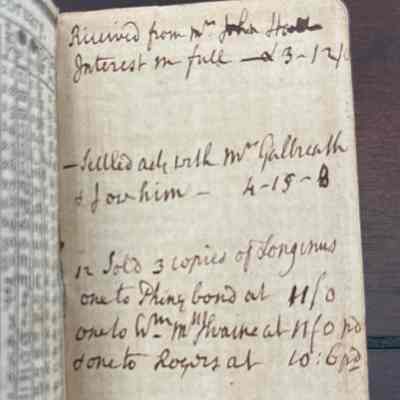 Received from Mr John Hall
Interest in full — £3-12/
— Settled acts with Mr Galbreath
& I ow him — 4-15-8
12 Sold 3 copies of Longinus
one to Phineybond at 11/0
one to Wm McIlvaine at 11/0 pd
& one to Rogers at 10:6 pd